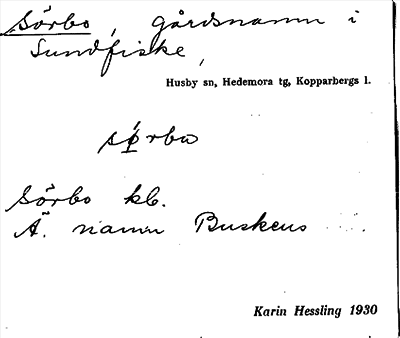 Sörbo, gårdsnamn i
Sundfiske,
Husby sn, Hedemora tg, Kopparbergs l.
Sörbo kb.
Ä. namn Buskens
Karin Hessling 1930